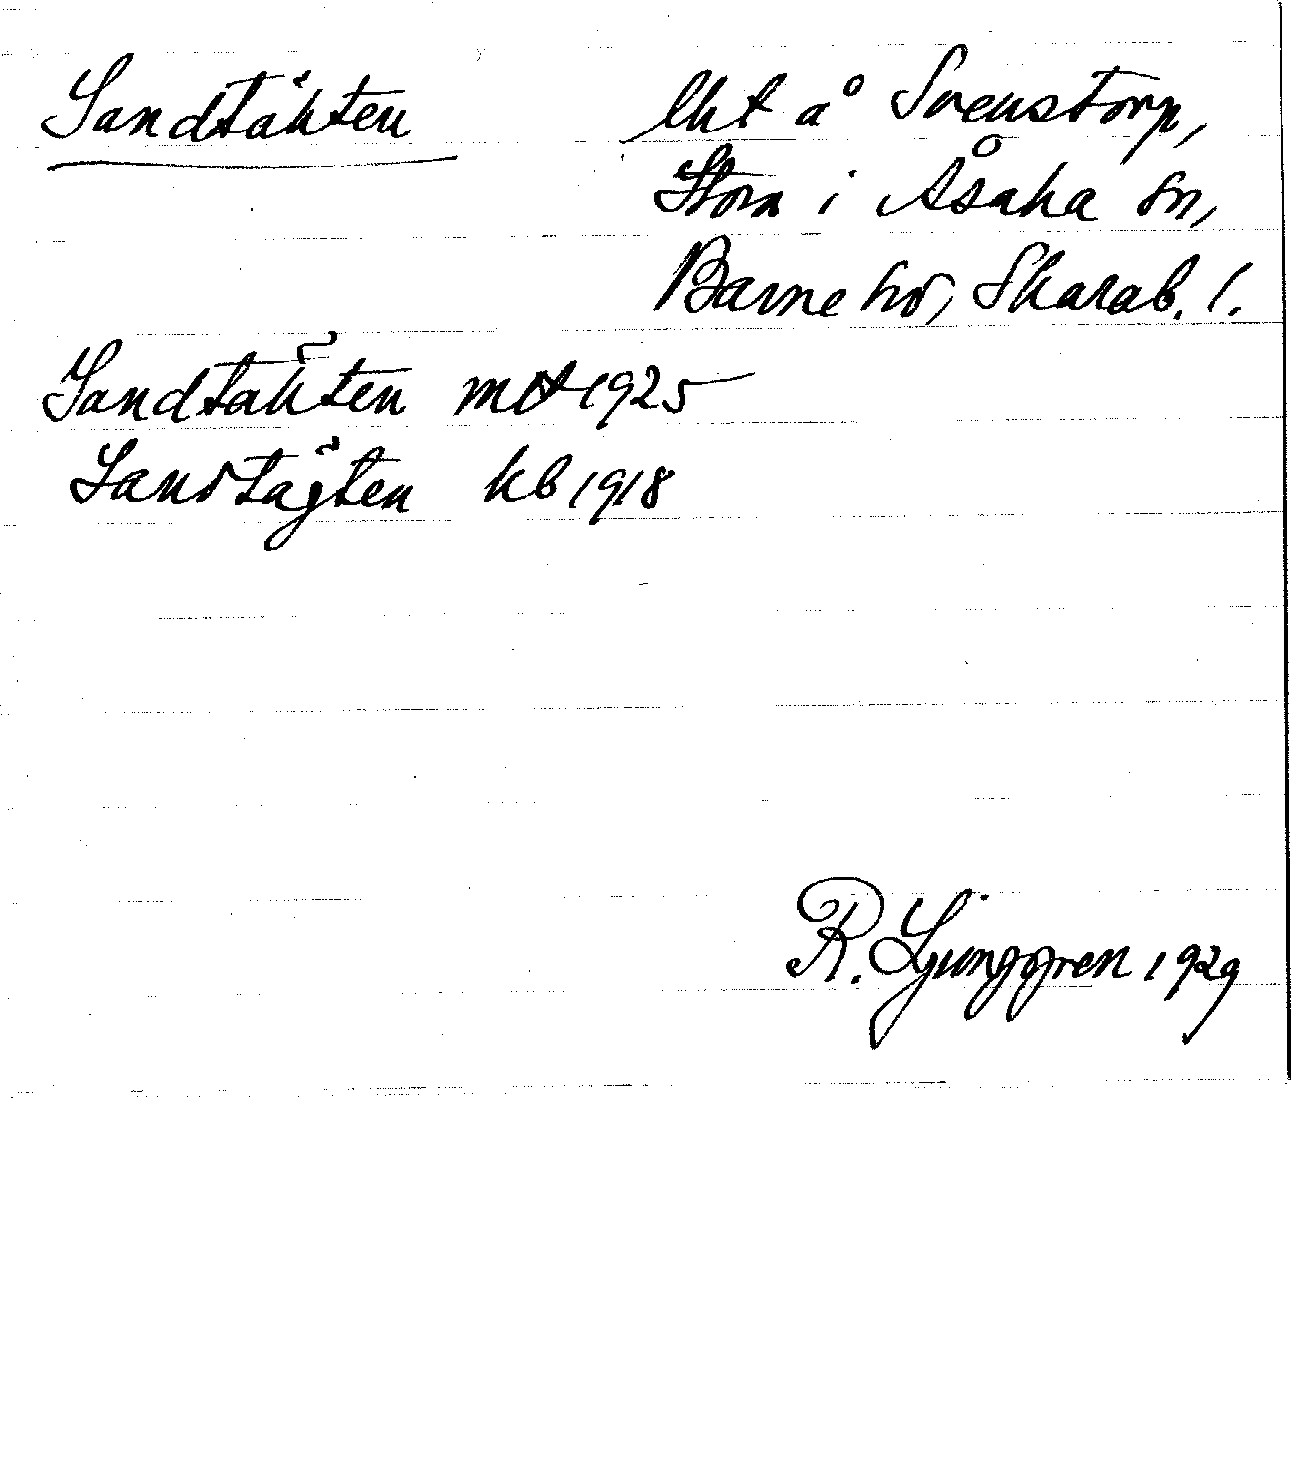 Sandtäkten
lht å Svenstorp,
Stora i Åsaka sn,
Barne hd, Skarab. l.
Sandtäkten mtl 1925
Sandtägten kb 1918
R. Ljunggren 1929